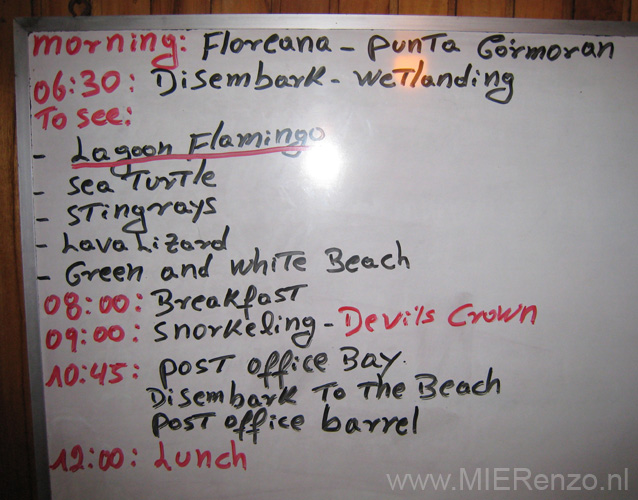 morning: Floreana - Punta Cormoran
06:30: Disembark - wetlanding
To see:
- Lagoon Flamingo
- Sea Turtle
- Stingrays
- Lava Lizard
- Green and white Beach
08:00: Breakfast
09:00: Snorkeling - Devils Crown
10:45: Post office Bay.
Disembark To The Beach
Post office barrel
12:00: Lunch
www.MIERenzo.nl